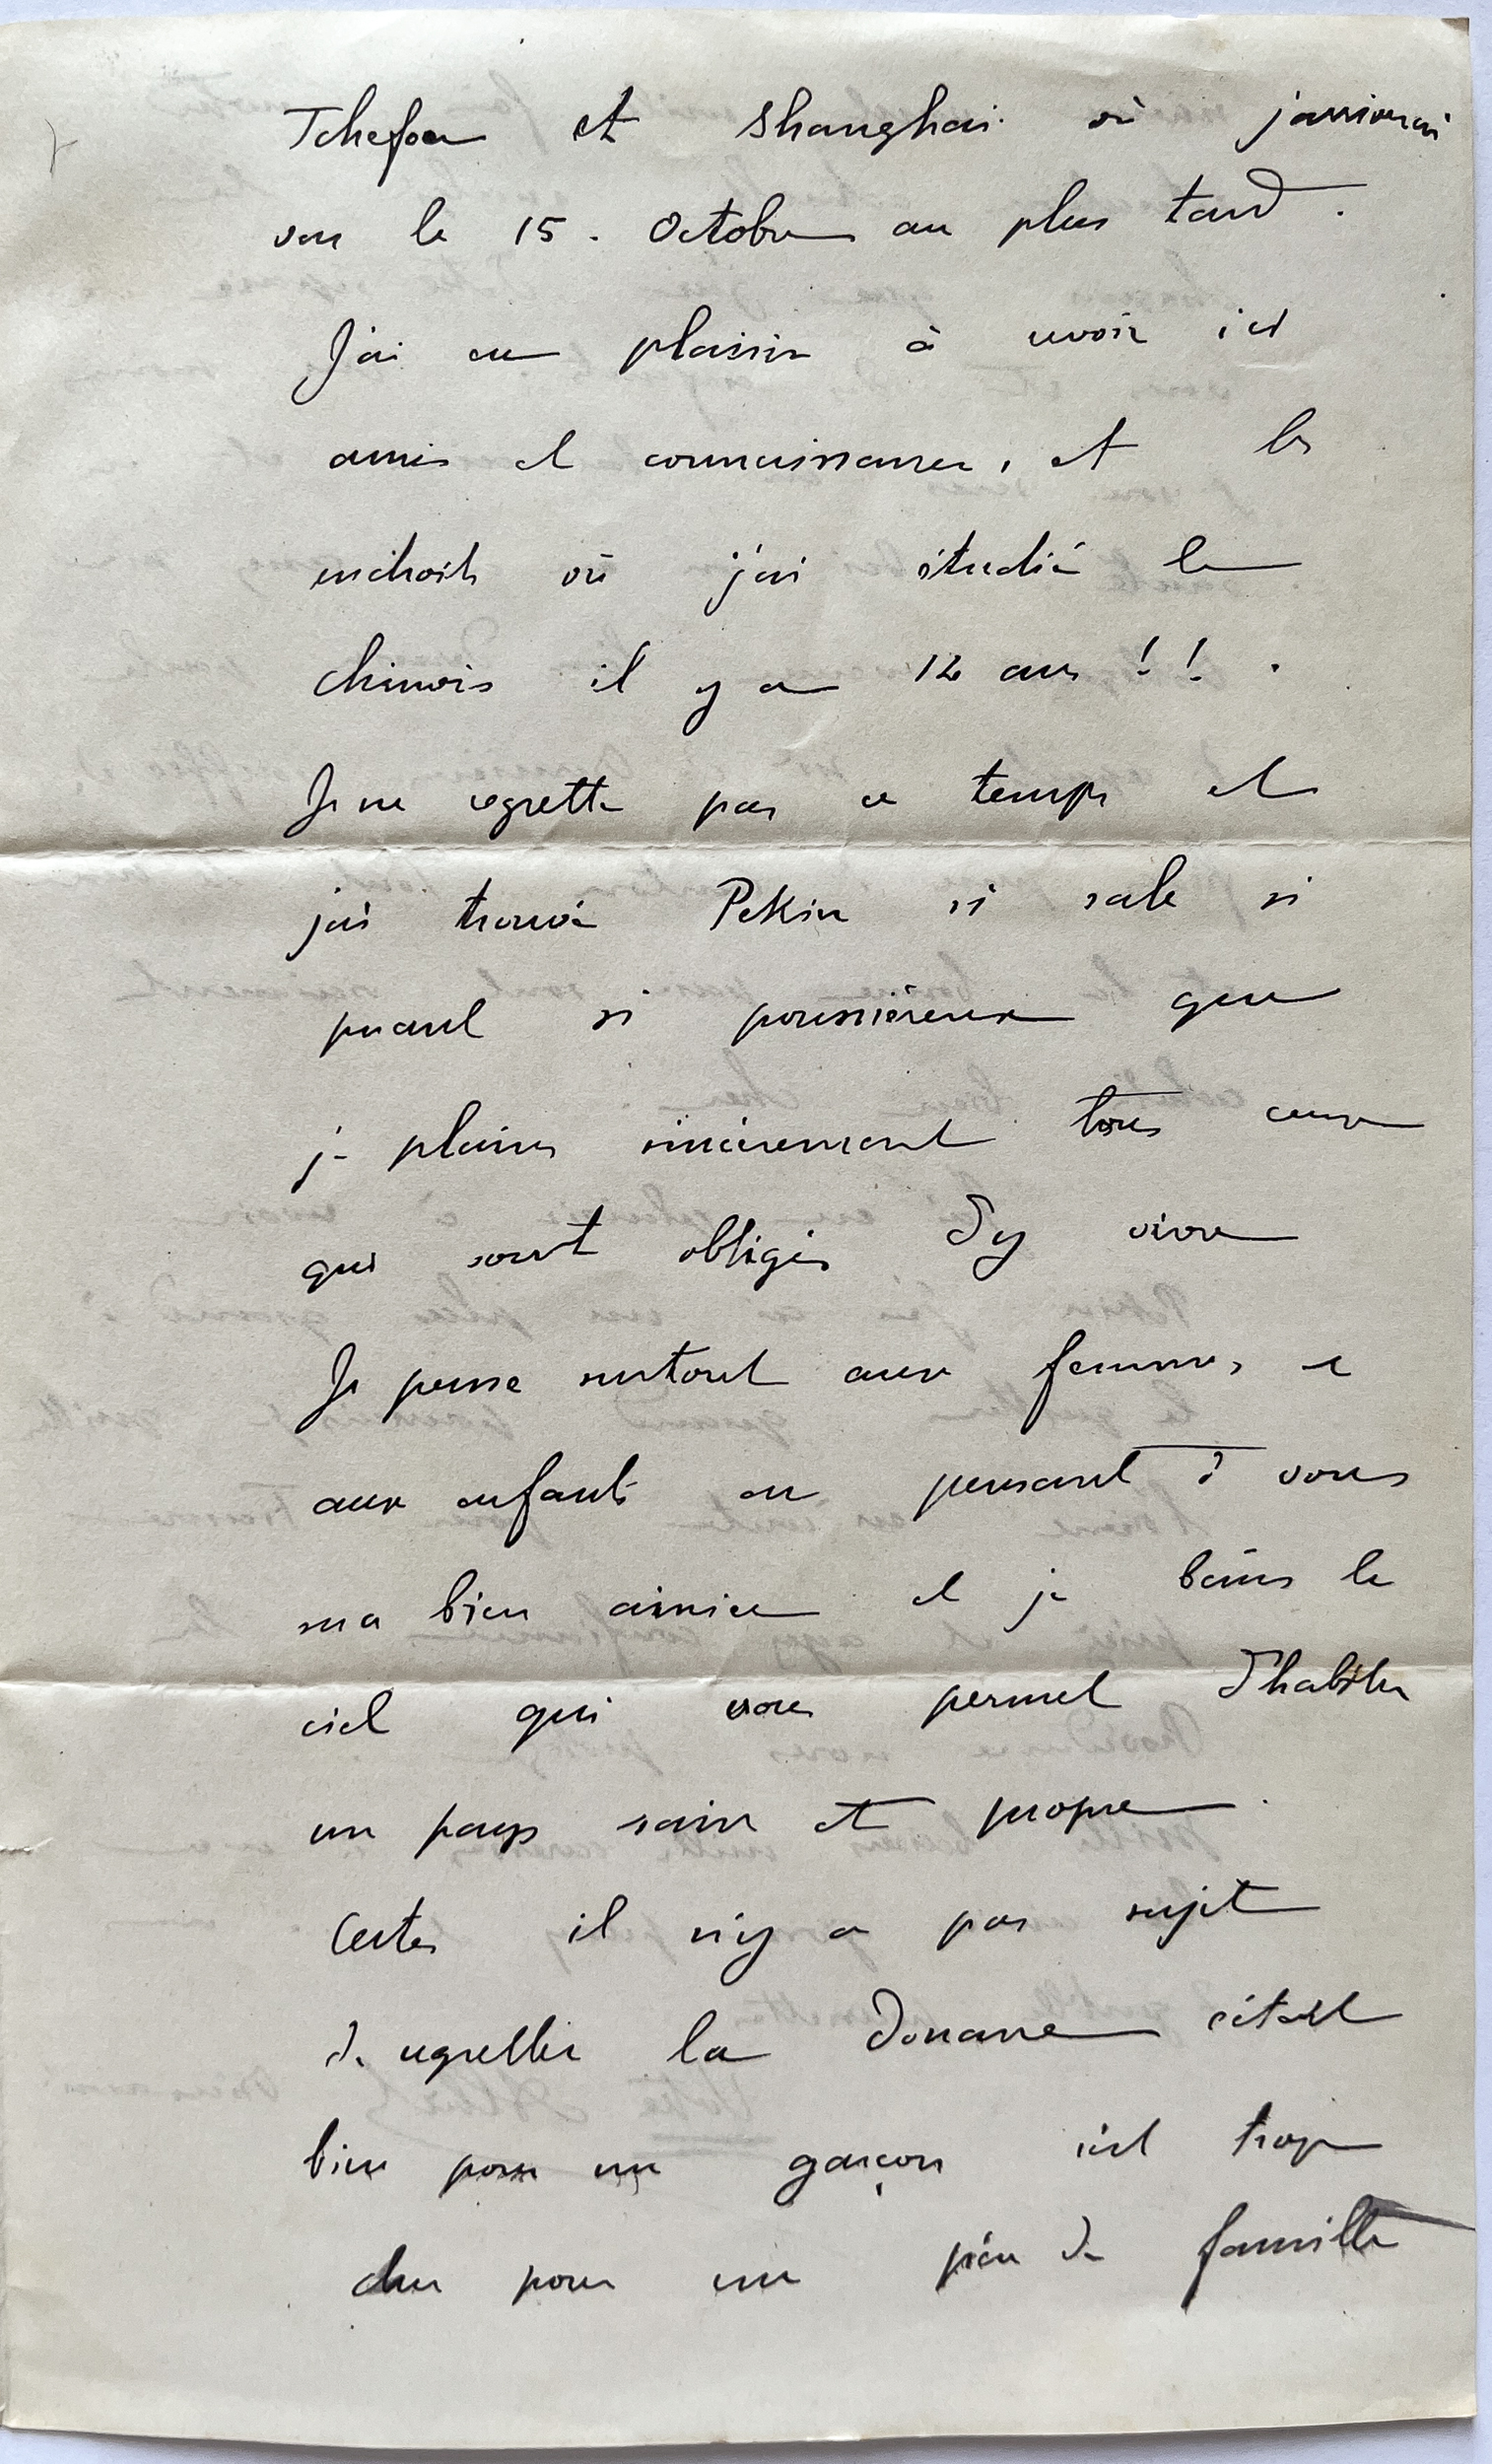 Tchefou et Shanghai où j'arriverai
vers le 15. Octobre au plus tard.
J'ai eu plaisir à revoir ici
amis et connaissances, et les
endroits où j'ai étudié le
chinois il y a 12 ans !! .
Je ne regrette pas ce temps et
j'ai trouvé Pekin si sale si
puant si poussiéreux que
je plains sincèrement tous ceux
qui sont obligés d'y vivre
Je pense surtout aux femmes et
aux enfants en pensant à vous
ma bien aimée et je bénis le
ciel qui vous permet d'habiter
un pays sain et propre.
Certes il n'y a pas sujet
de regretter la Douane c'était
bien pour un garçon c'est trop
dur pour un père de famille